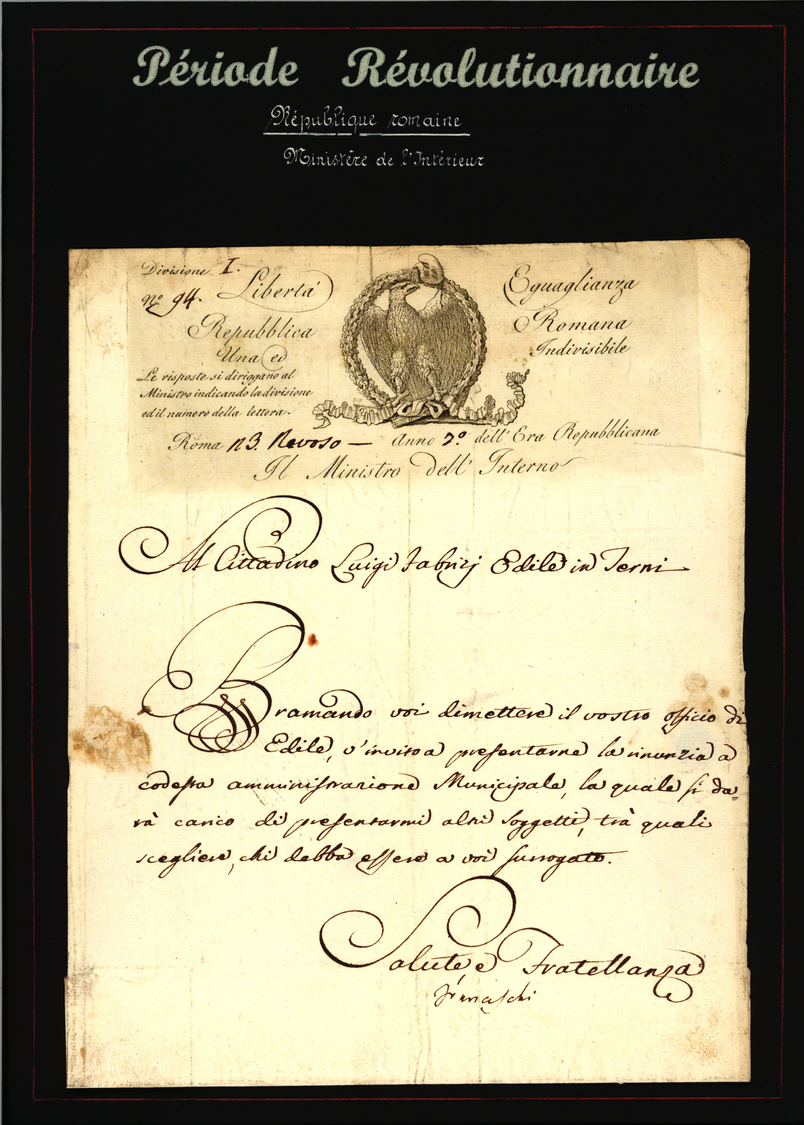 Période Révolutionnaire
République romaine
Ministère de l'Intérieur
Divisione I.
Nº 94. Libertà Eguaglianza
Repubblica Romana
Una ed Indivisibile
Le risposte si diriggano al
Ministro indicando la divisione
ed il numero della lettera.
Roma 23. Nevoso — Anno 7º dell'Era Repubblicana
Il Ministro dell'Interno
Al Cittadino Luigi Fabrizj Edile in Terni
Bramando voi dimettere il vostro officio di
Edile, v'invito a presentarne la rinunzia a
codesta amministrazione Municipale, la quale si da=
rà carico di presentarmi altri soggetti, trà quali
scegliere, chi debba essere a voi surrogato.
Salute, e Fratellanza